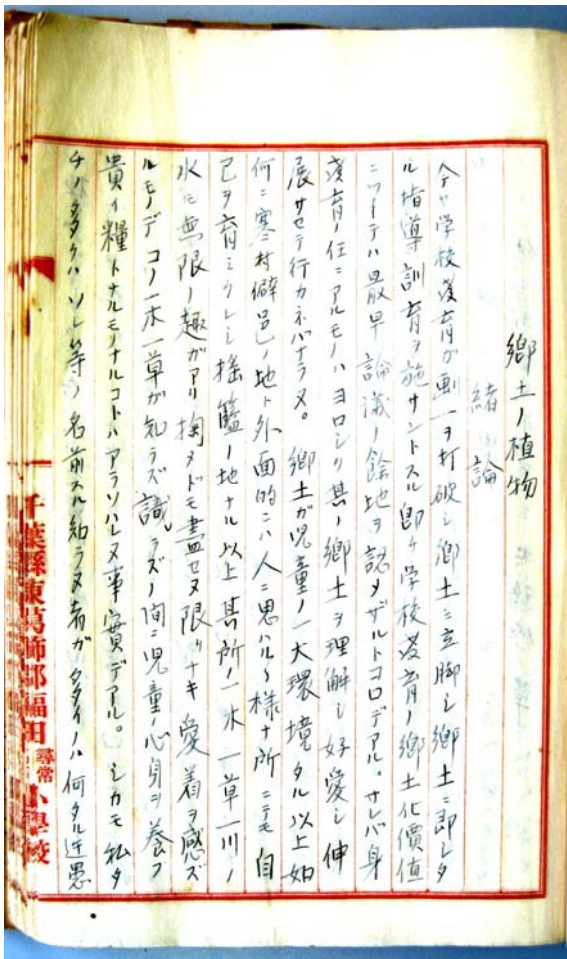 郷土ノ植物
緒論
今ヤ学校教育ガ画一ヲ打破シ郷土ニ立脚シ郷土ニ即シタ
ル指導訓育ヲ施サントスル即チ学校教育ノ郷土化價值
ニツイテハ最早論議ノ餘地ヲ認メザルトコロデアル。サレバ身
教育ノ任ニアルモノハヨロシク其ノ郷土ヲ理解シ好愛シ伸
展サセテ行カネバナラヌ。郷土ガ児童ノ一大環境タル以上如
何ニ寒村僻邑ノ地ト外面的ニハ人ニ思ハルヽ様ナ所ニテモ自
己ヲ育ミクレシ揺籃ノ地ナル以上其所ノ一木一草一川ノ
水モ無限ノ趣ガアリ掬メドモ盡セヌ限リナキ愛着ヲ感ズ
ルモノデコノ一木一草ガ知ラズ識ラズノ間ニ児童ノ心身ヲ養フ
貴イ糧トナルモノナルコトハアラソハレヌ事實デアル。シカモ私タ
チノ多クハソレ等ノ名前スル知ラヌ者ガタダイノハ何タル迂愚
千葉縣東葛飾郡福田尋常小學校